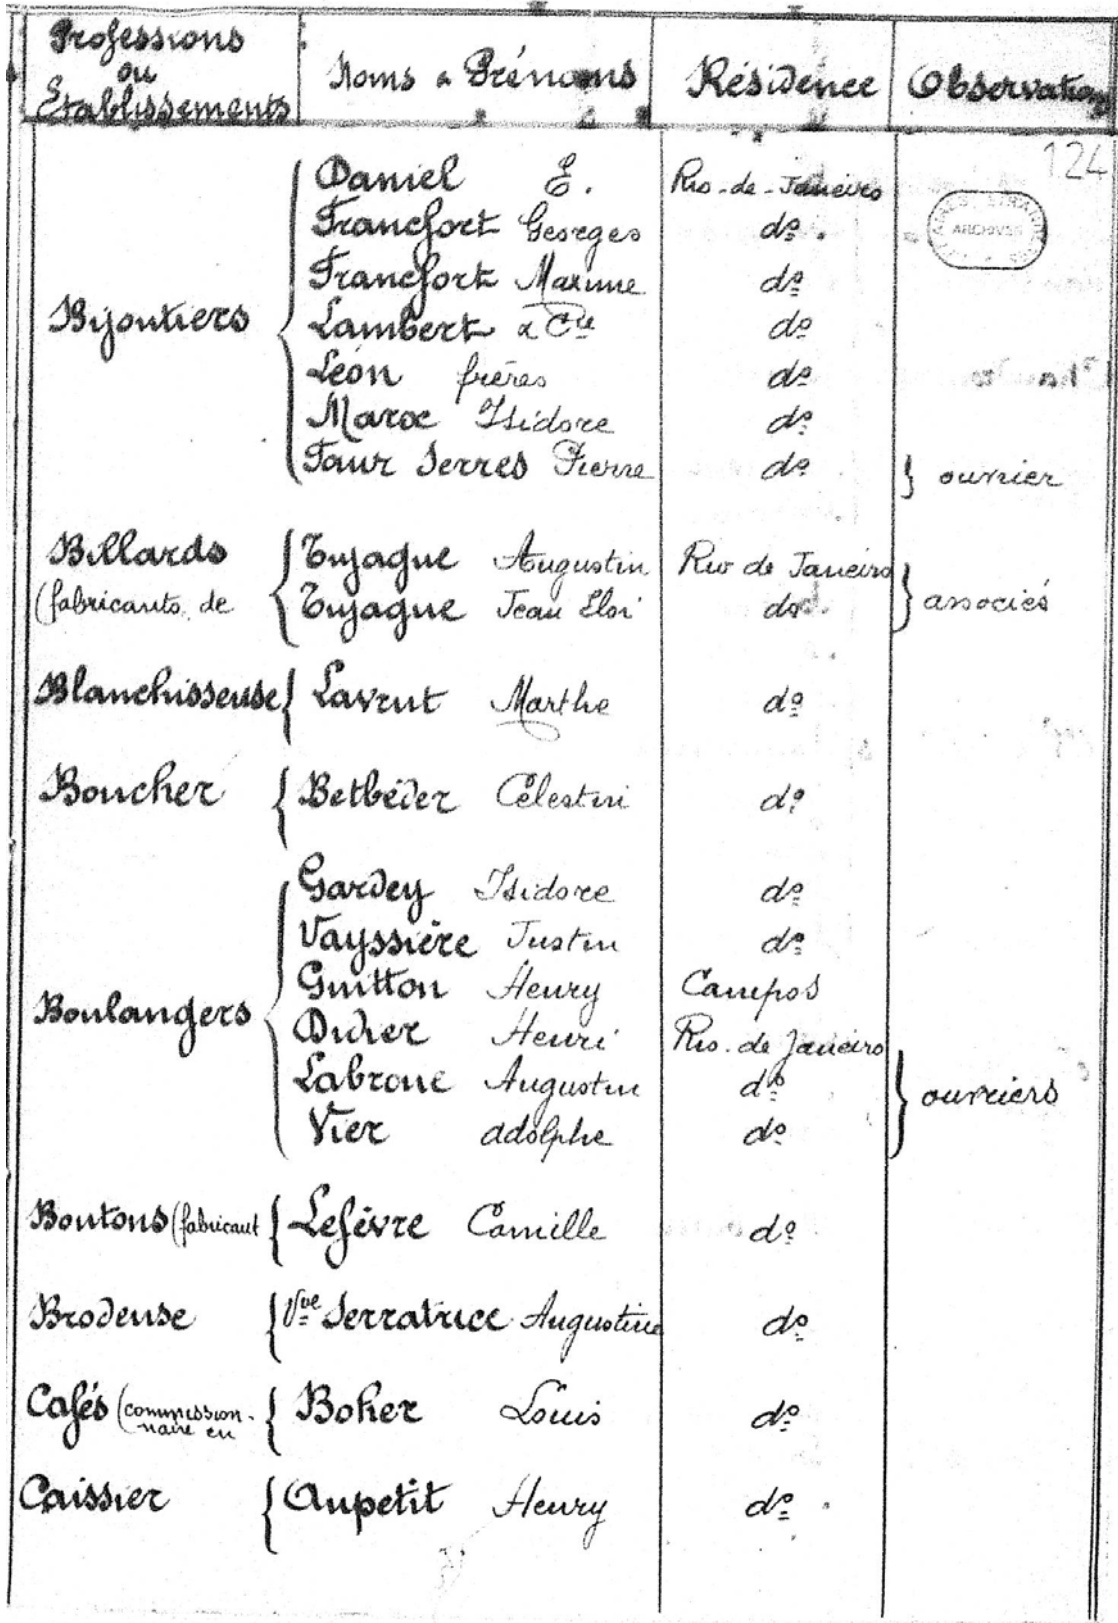 Professions ou Etablissements Noms & Prénoms Résidence Observation
124
ARCHIVES
Daniel E. Rio-de-Janeiro
Francfort Georges do
Francfort Maxime do
Bijoutiers Lambert & Cie do
Léon frères do
Maroc Isidore do
Faur Serres Pierre do ouvrier
Billards Tujague Augustin Rio de Janeiro
(fabricants de Tujague Jean Eloi do associés
Blanchisseuse Lavrut Marthe do
Boucher Betbéder Célestin do
Gardey Isidore do
Vayssière Justin do
Guitton Henry Campos
Boulangers Didier Henri Rio. de Janeiro
Labroue Augustin do ouvriers
Vier adolphe do
Boutons (fabricant Lefèvre Camille do
Brodeuse Vve Serratrice Augustine do
Cafés (commission-
naire en Boher Louis do
Caissier Aupetit Henry do